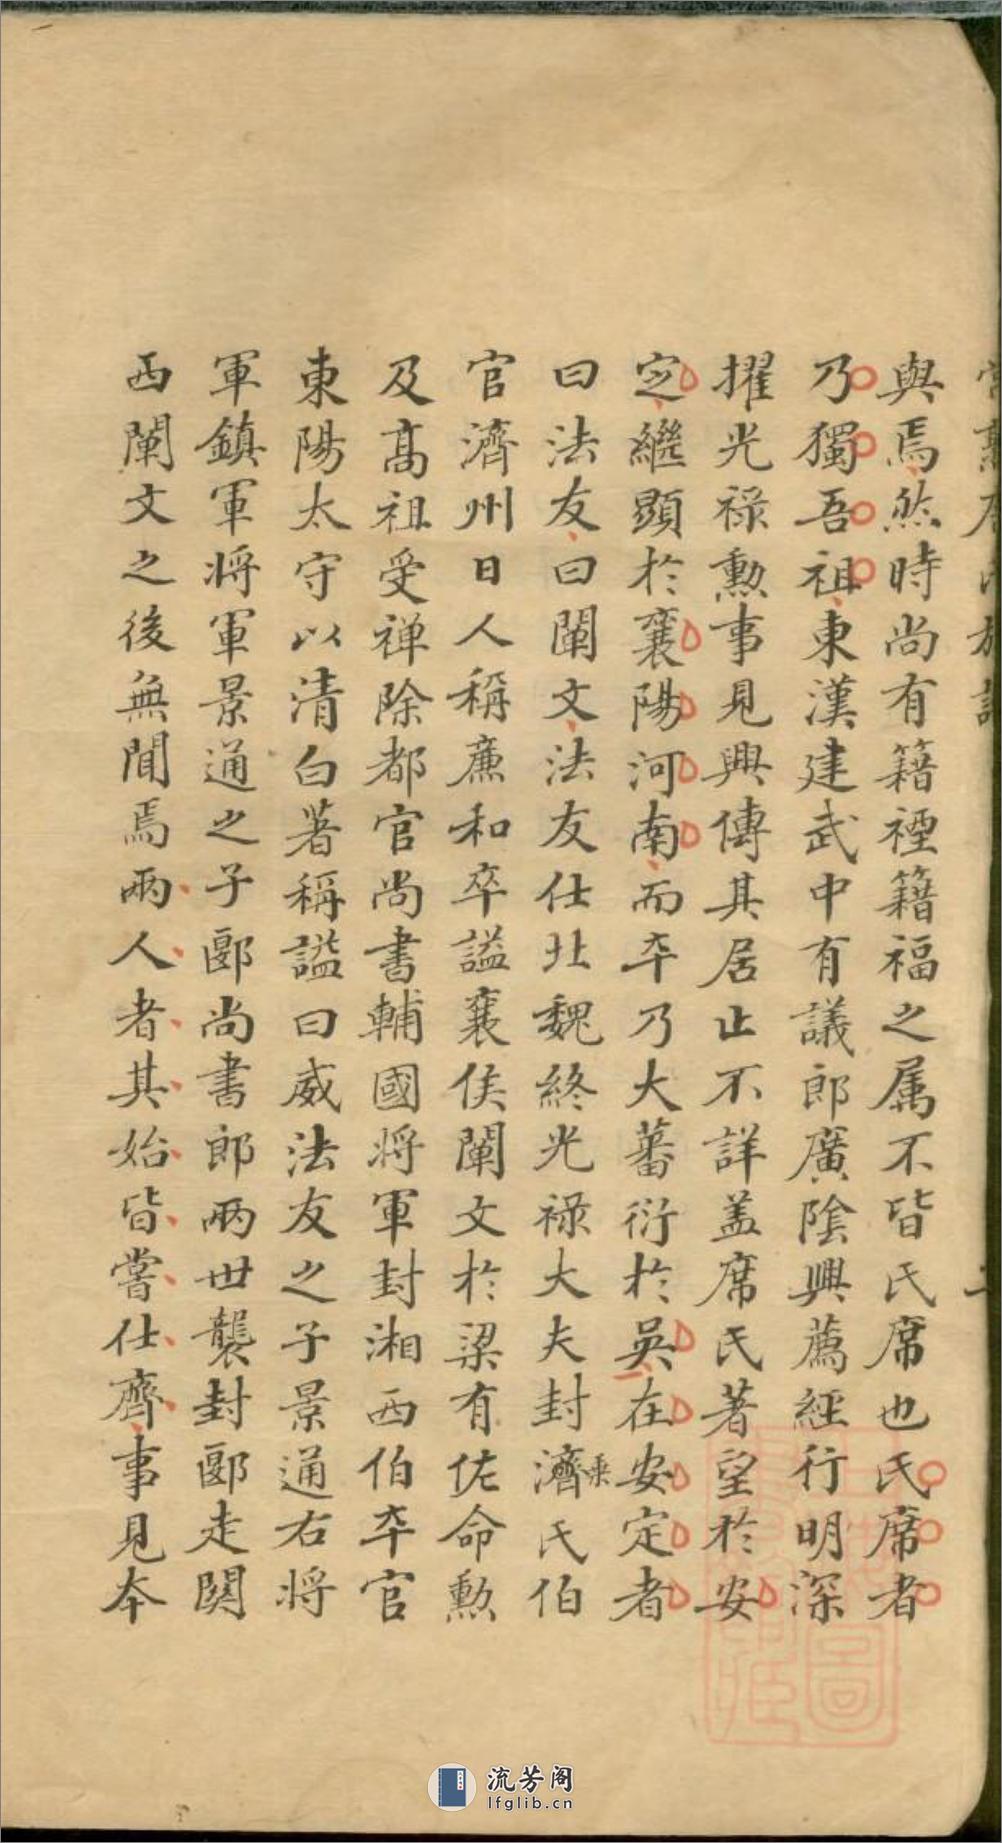 常熟席氏族譜 二
與焉然時尚有籍禋籍福之属不皆氏席也氏席者
乃獨吾祖東漢建武中有議郎廣陰興薦經行明深
擢光祿勲事見興傳其居止不詳盖席氏著望於安
定繼顕於襄陽河南而卒乃大蕃衍於吳在安定者
曰法友曰闡文法友仕北魏終光祿大夫封濟氏伯
乘
官濟州日人稱廉和卒謚襄侯闡文於梁有佐命勲
及髙祖受禅除都官尚書輔國将軍封湘西伯卒官
東陽太守以清白著稱謚曰威法友之子景通右将
軍鎮軍将軍景通之子郾尚書郎兩世襲封郾走関
西闡文之後無聞焉兩人者其始皆嘗仕齊事見本
流芳阁
lfglib.cn